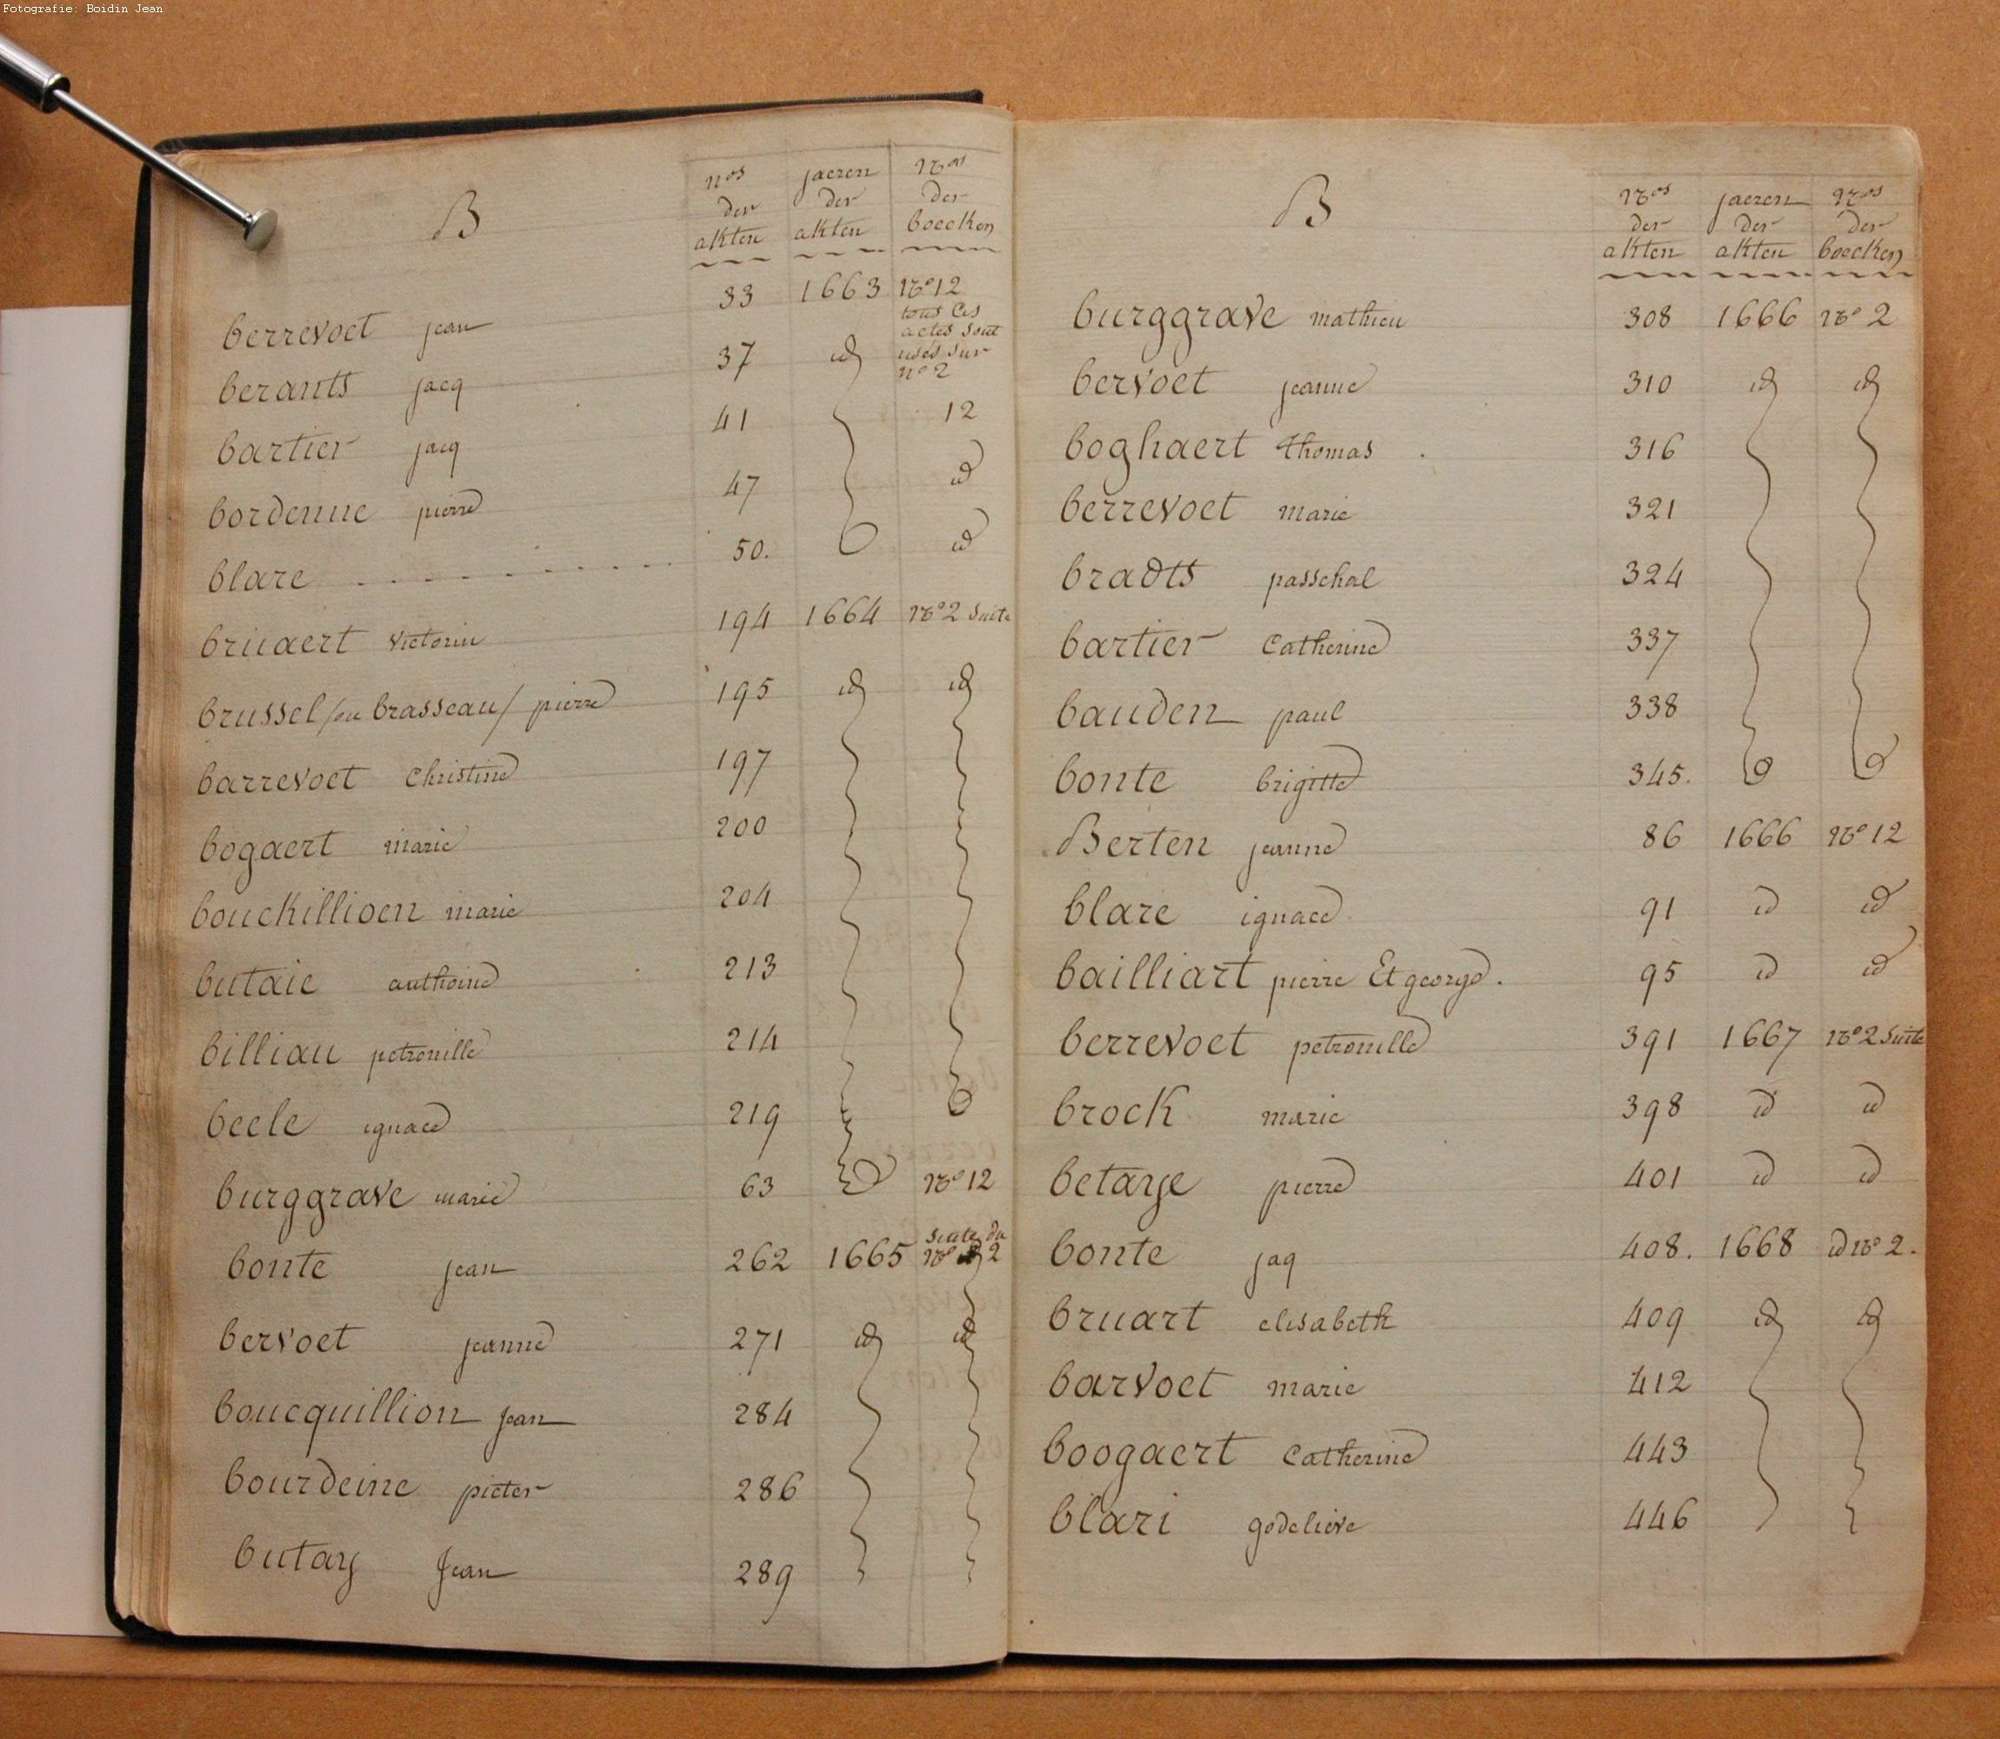 Fotografie: Boidin Jean
B
nos der akten
jaeren der akten
nos der boecken
berrevoet jean 33 1663 no 12
tous ces actes sont
usés sur no 2
berants jacq 37 id
bartier jacq 41 12
bordenne pierre 47 id
blare - - - - - - - - - 50. id
bruaert victorin 194 1664 No 2 suite
brussel /ou brasseau/ pierre 195 id id
barrevoet christine 197
bogaert marie 200
bouckillioen marie 204
butaie anthoine 213
billiau petronille 214
beele ignace 219
burggrave marie 63 No 12
bonte jean 262 1665 suite du No 2
bervoet jeanne 271 id id
boucquillion jean 284
bourdeine pieter 286
butay Jean 289
B
Nos der akten
jaeren der akten
Nos der boecken
burggrave mathieu 308 1666 No 2
bervoet jeanne 310 id id
boghaert thomas . 316
berrevoet marie 321
bradts passchal 324
bartier Catherine 337
bauden paul 338
bonte brigitte 345.
Berten jeanne 86 1666 No 12
blare ignace 91 id id
bailliart pierre Et george. 95 id id
berrevoet petronille 391 1667 No 2 suite
brock marie 398 id id
betaye pierre 401 id id
bonte jaq 408. 1668 id No 2.
bruart elisabeth 409 id id
barvoet marie 412
boogaert Catherine 443
blari godelieve 446